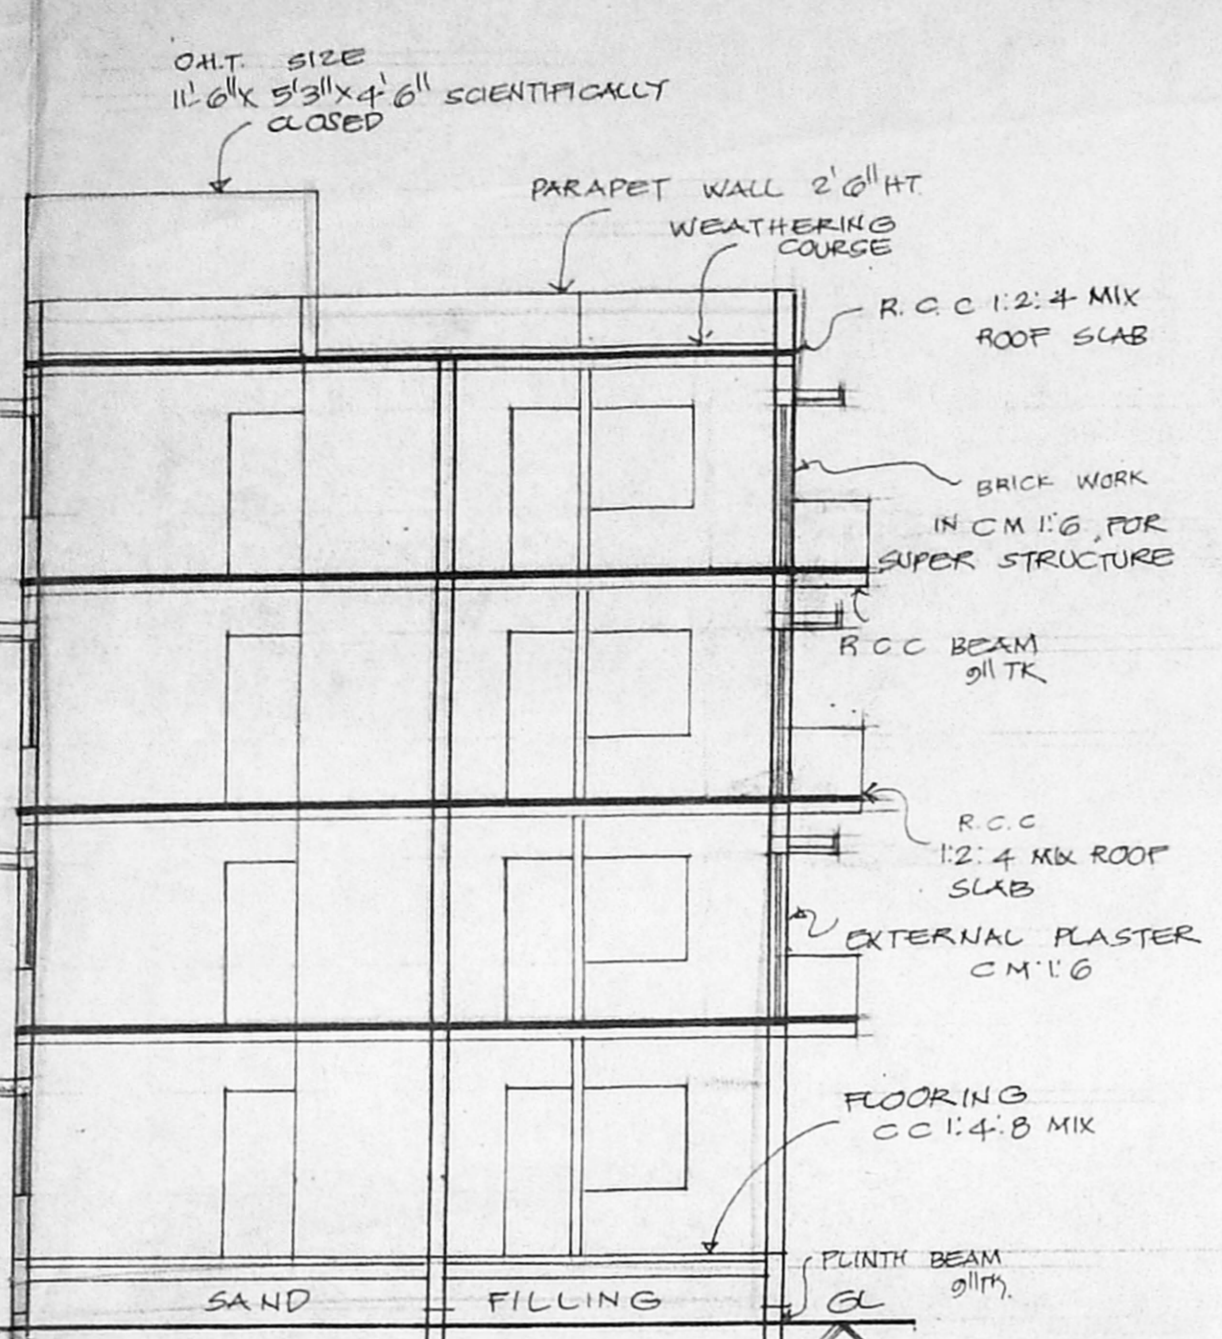 O.H.T. SIZE
11'-6"X 5'3"X4'-6" SCIENTIFICALLY
CLOSED
PARAPET WALL 2'6" HT.
WEATHERING
COURSE
R.C.C 1:2:4 MIX
ROOF SLAB
BRICK WORK
IN CM 1:6, FOR
SUPER STRUCTURE
R C C BEAM
9" TK
R.C.C
1:2:4 MIX ROOF
SLAB
EXTERNAL PLASTER
CM 1:6
FLOORING
CC 1:4:8 MIX
PLINTH BEAM
9" TK.
SAND FILLING GL